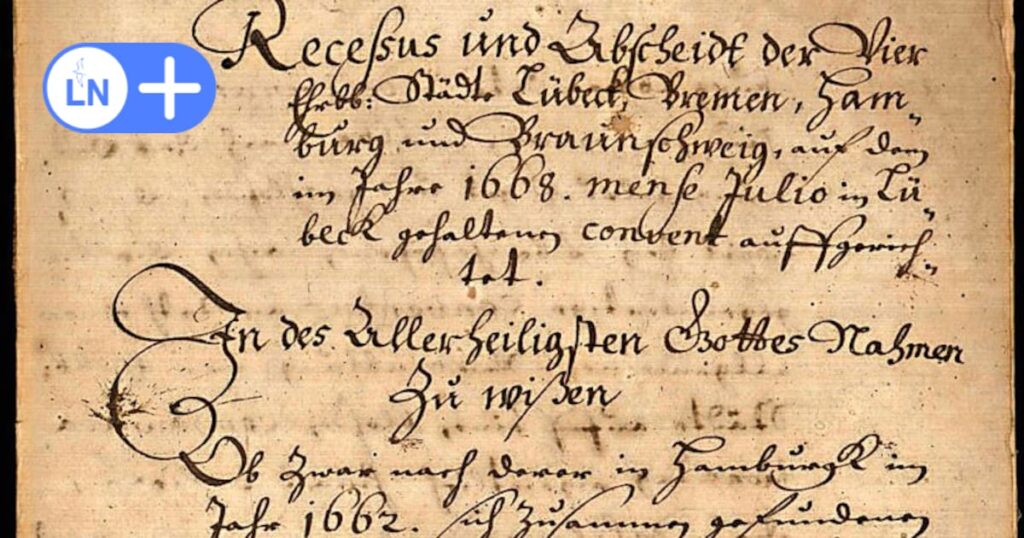 LN+
Recessus und Abscheidt der Vier
Ehrbb: Städte Lübeck, Bremen, Ham„
burg und Braunschweig, auf dem
im Jahre 1668. mense Julio in Lü„
beck gehaltenen convent auffgerich„
tet.
In des Allerheiligsten Gottes Nahmen
Zu wißen
Ob Zwar nach derer in Hamburgk im
Jahr 1662. sich Zusammen gefundenen